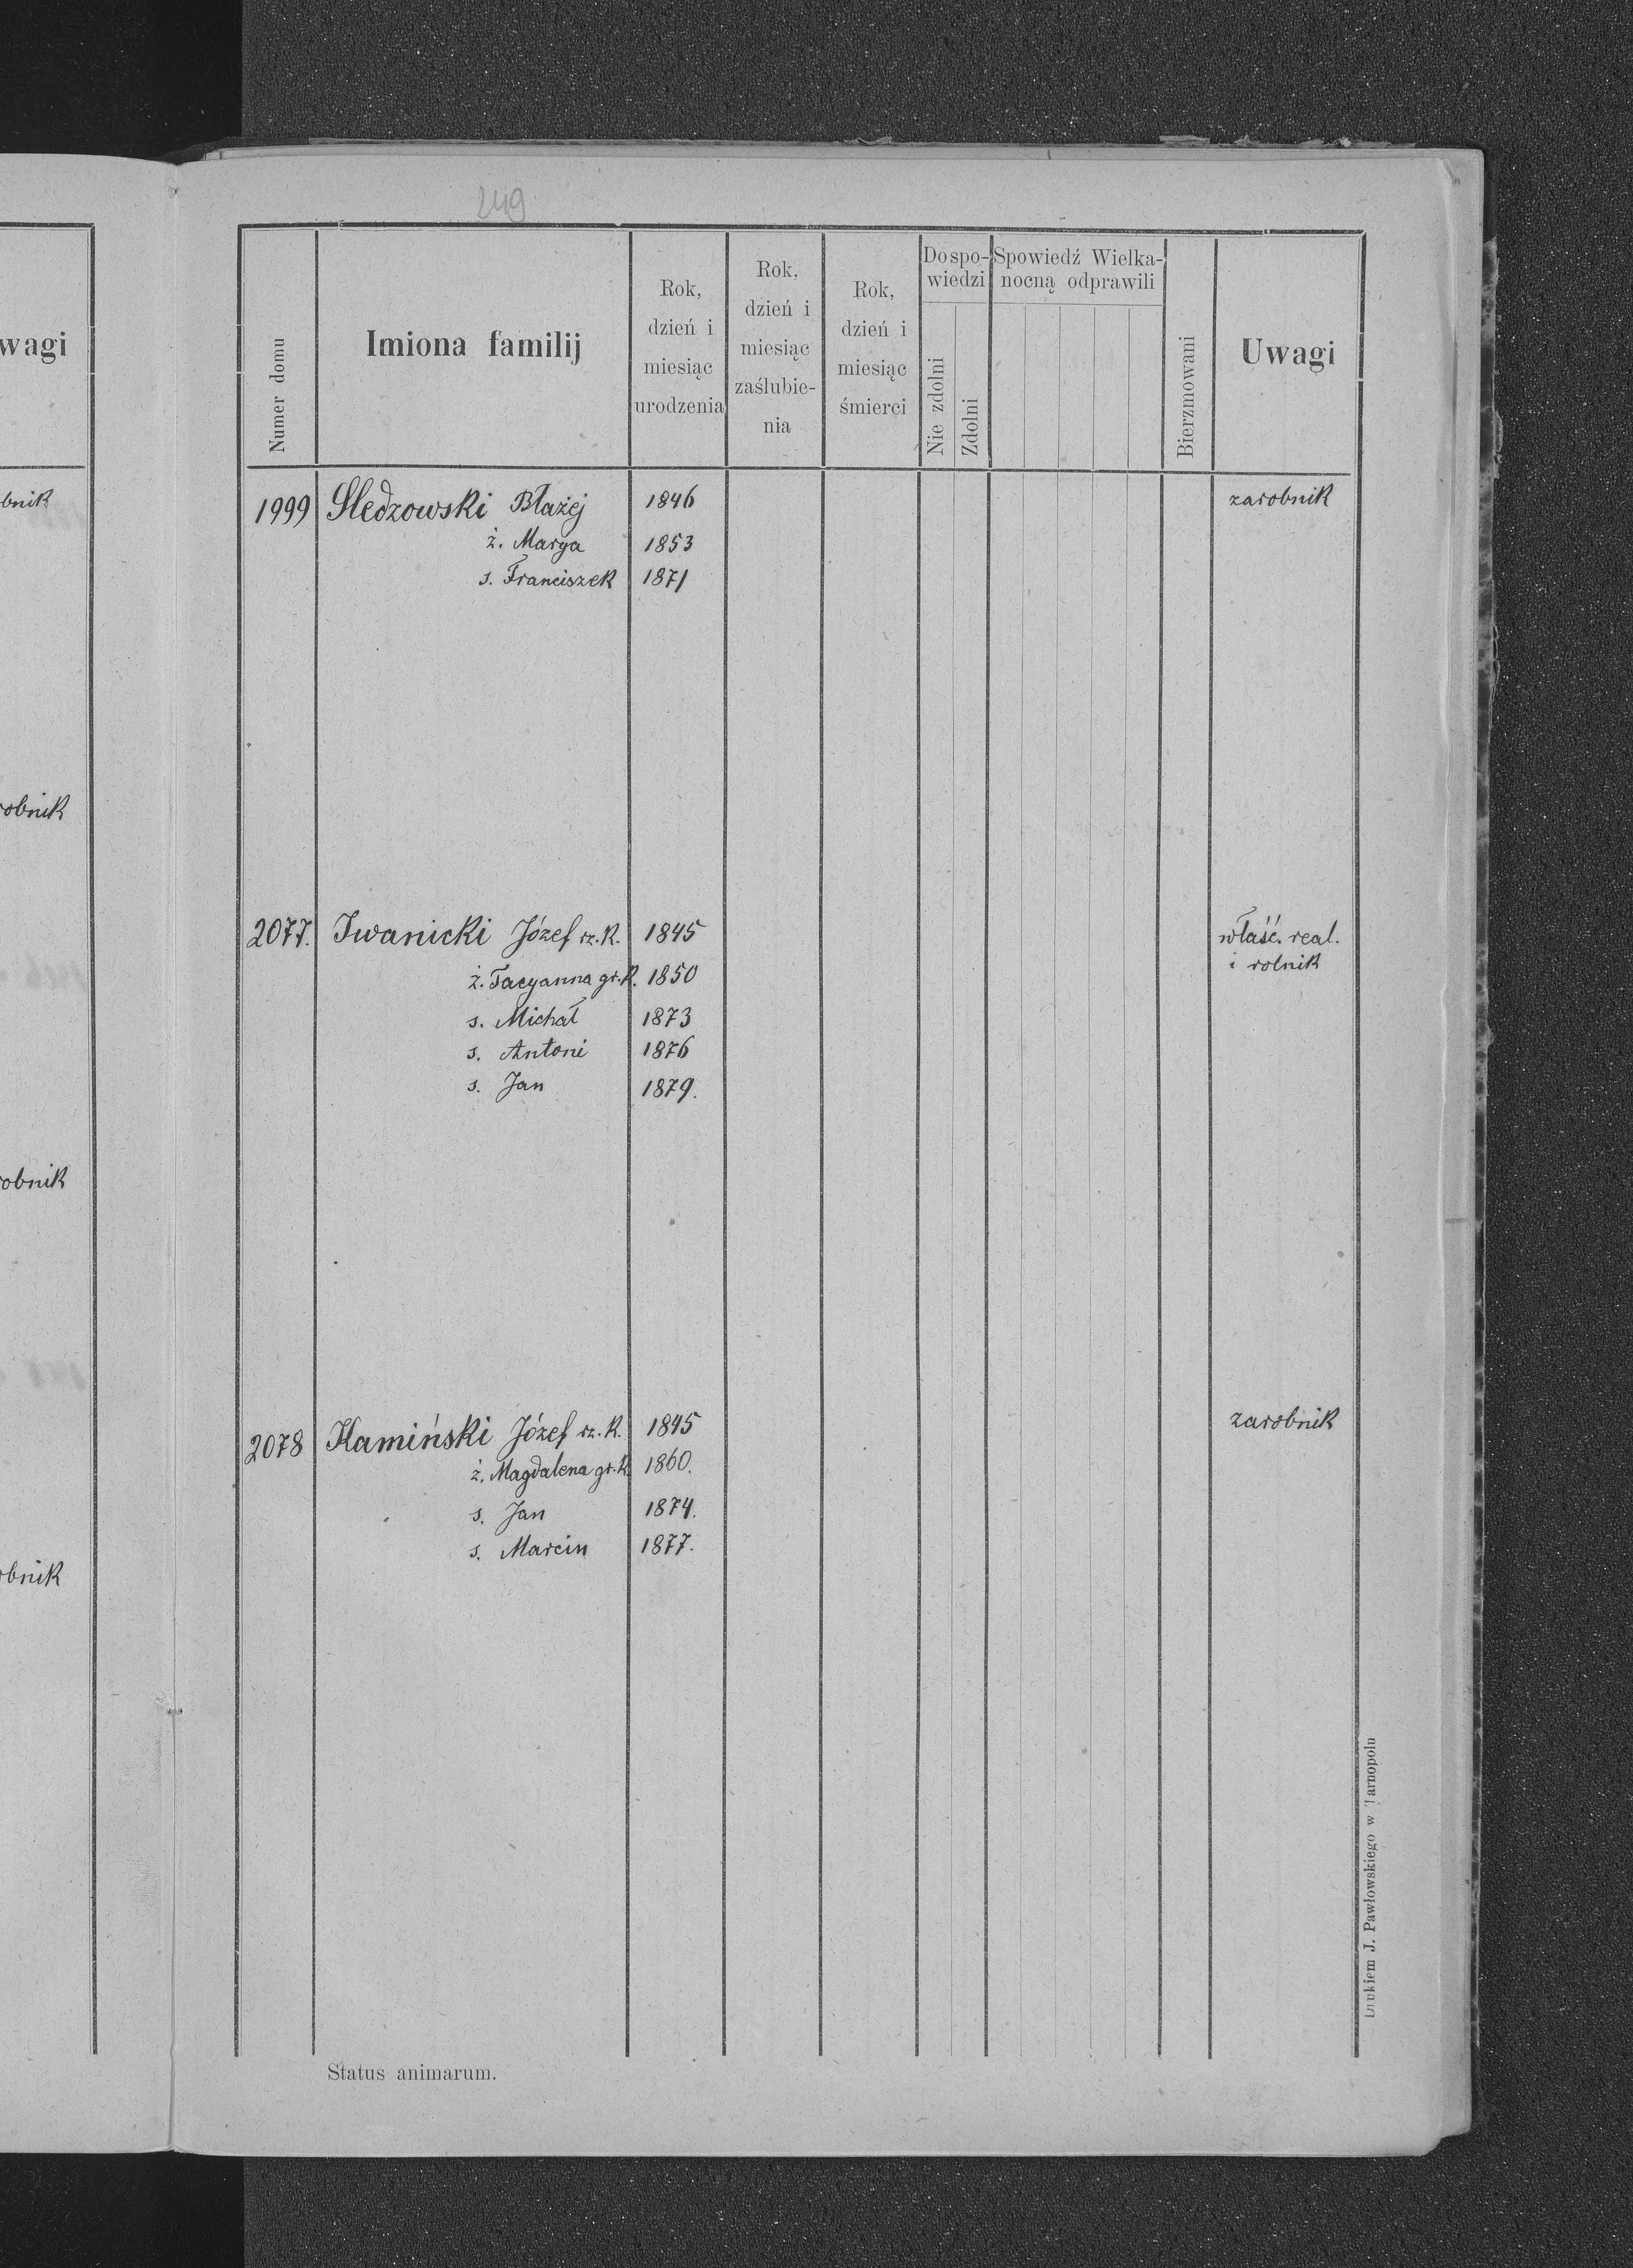 249
wagi
Numer domu
Imiona familij
Rok,
dzień i
miesiąc
urodzenia
Rok,
dzień i
miesiąc
zaślubie-
nia
Rok,
dzień i
miesiąc
śmierci
Do spo-
wiedzi
Nie zdolni
Zdolni
Spowiedź Wielka-
nocną odprawili
Bierzmowani
Uwagi
bnik
1999 Sledzowski Błażej 1846 zarobnik
ż. Marya 1853
s. Franciszek 1871
robnik
2077. Iwanicki Józef rz.k. 1845 właść. real.
i rolnik
ż. Tacyanna gr.k. 1850
s. Michał 1873
s. Antoni 1876
s. Jan 1879.
obnik
2078 Kamiński Józef rz.k. 1845 zarobnik
ż. Magdalena gr.k 1860.
s. Jan 1874.
s. Marcin 1877.
obnik
Drukiem J. Pawłowskiego w Tarnopolu
Status animarum.